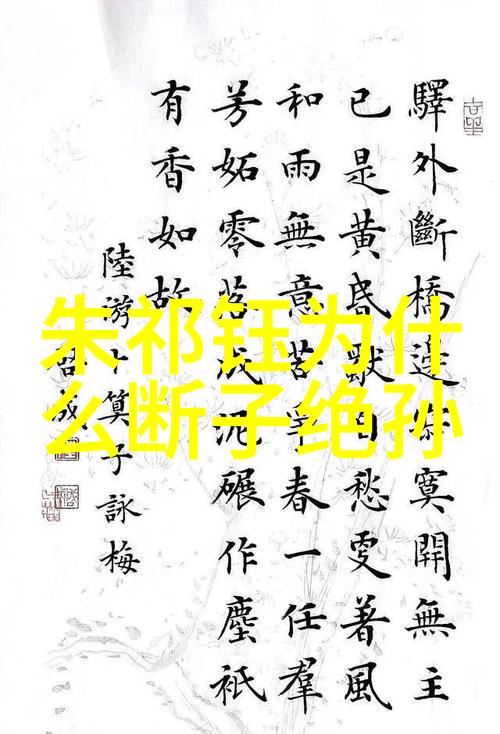 朱祁钰为什
么断子绝孙
驛外斷橋邊寂寞開無主
已是黃昏獨自愁更著風
和雨無意苦爭春一任羣
芳妬零落成泥碾作塵祇
有香如故
陸游卜算子詠梅